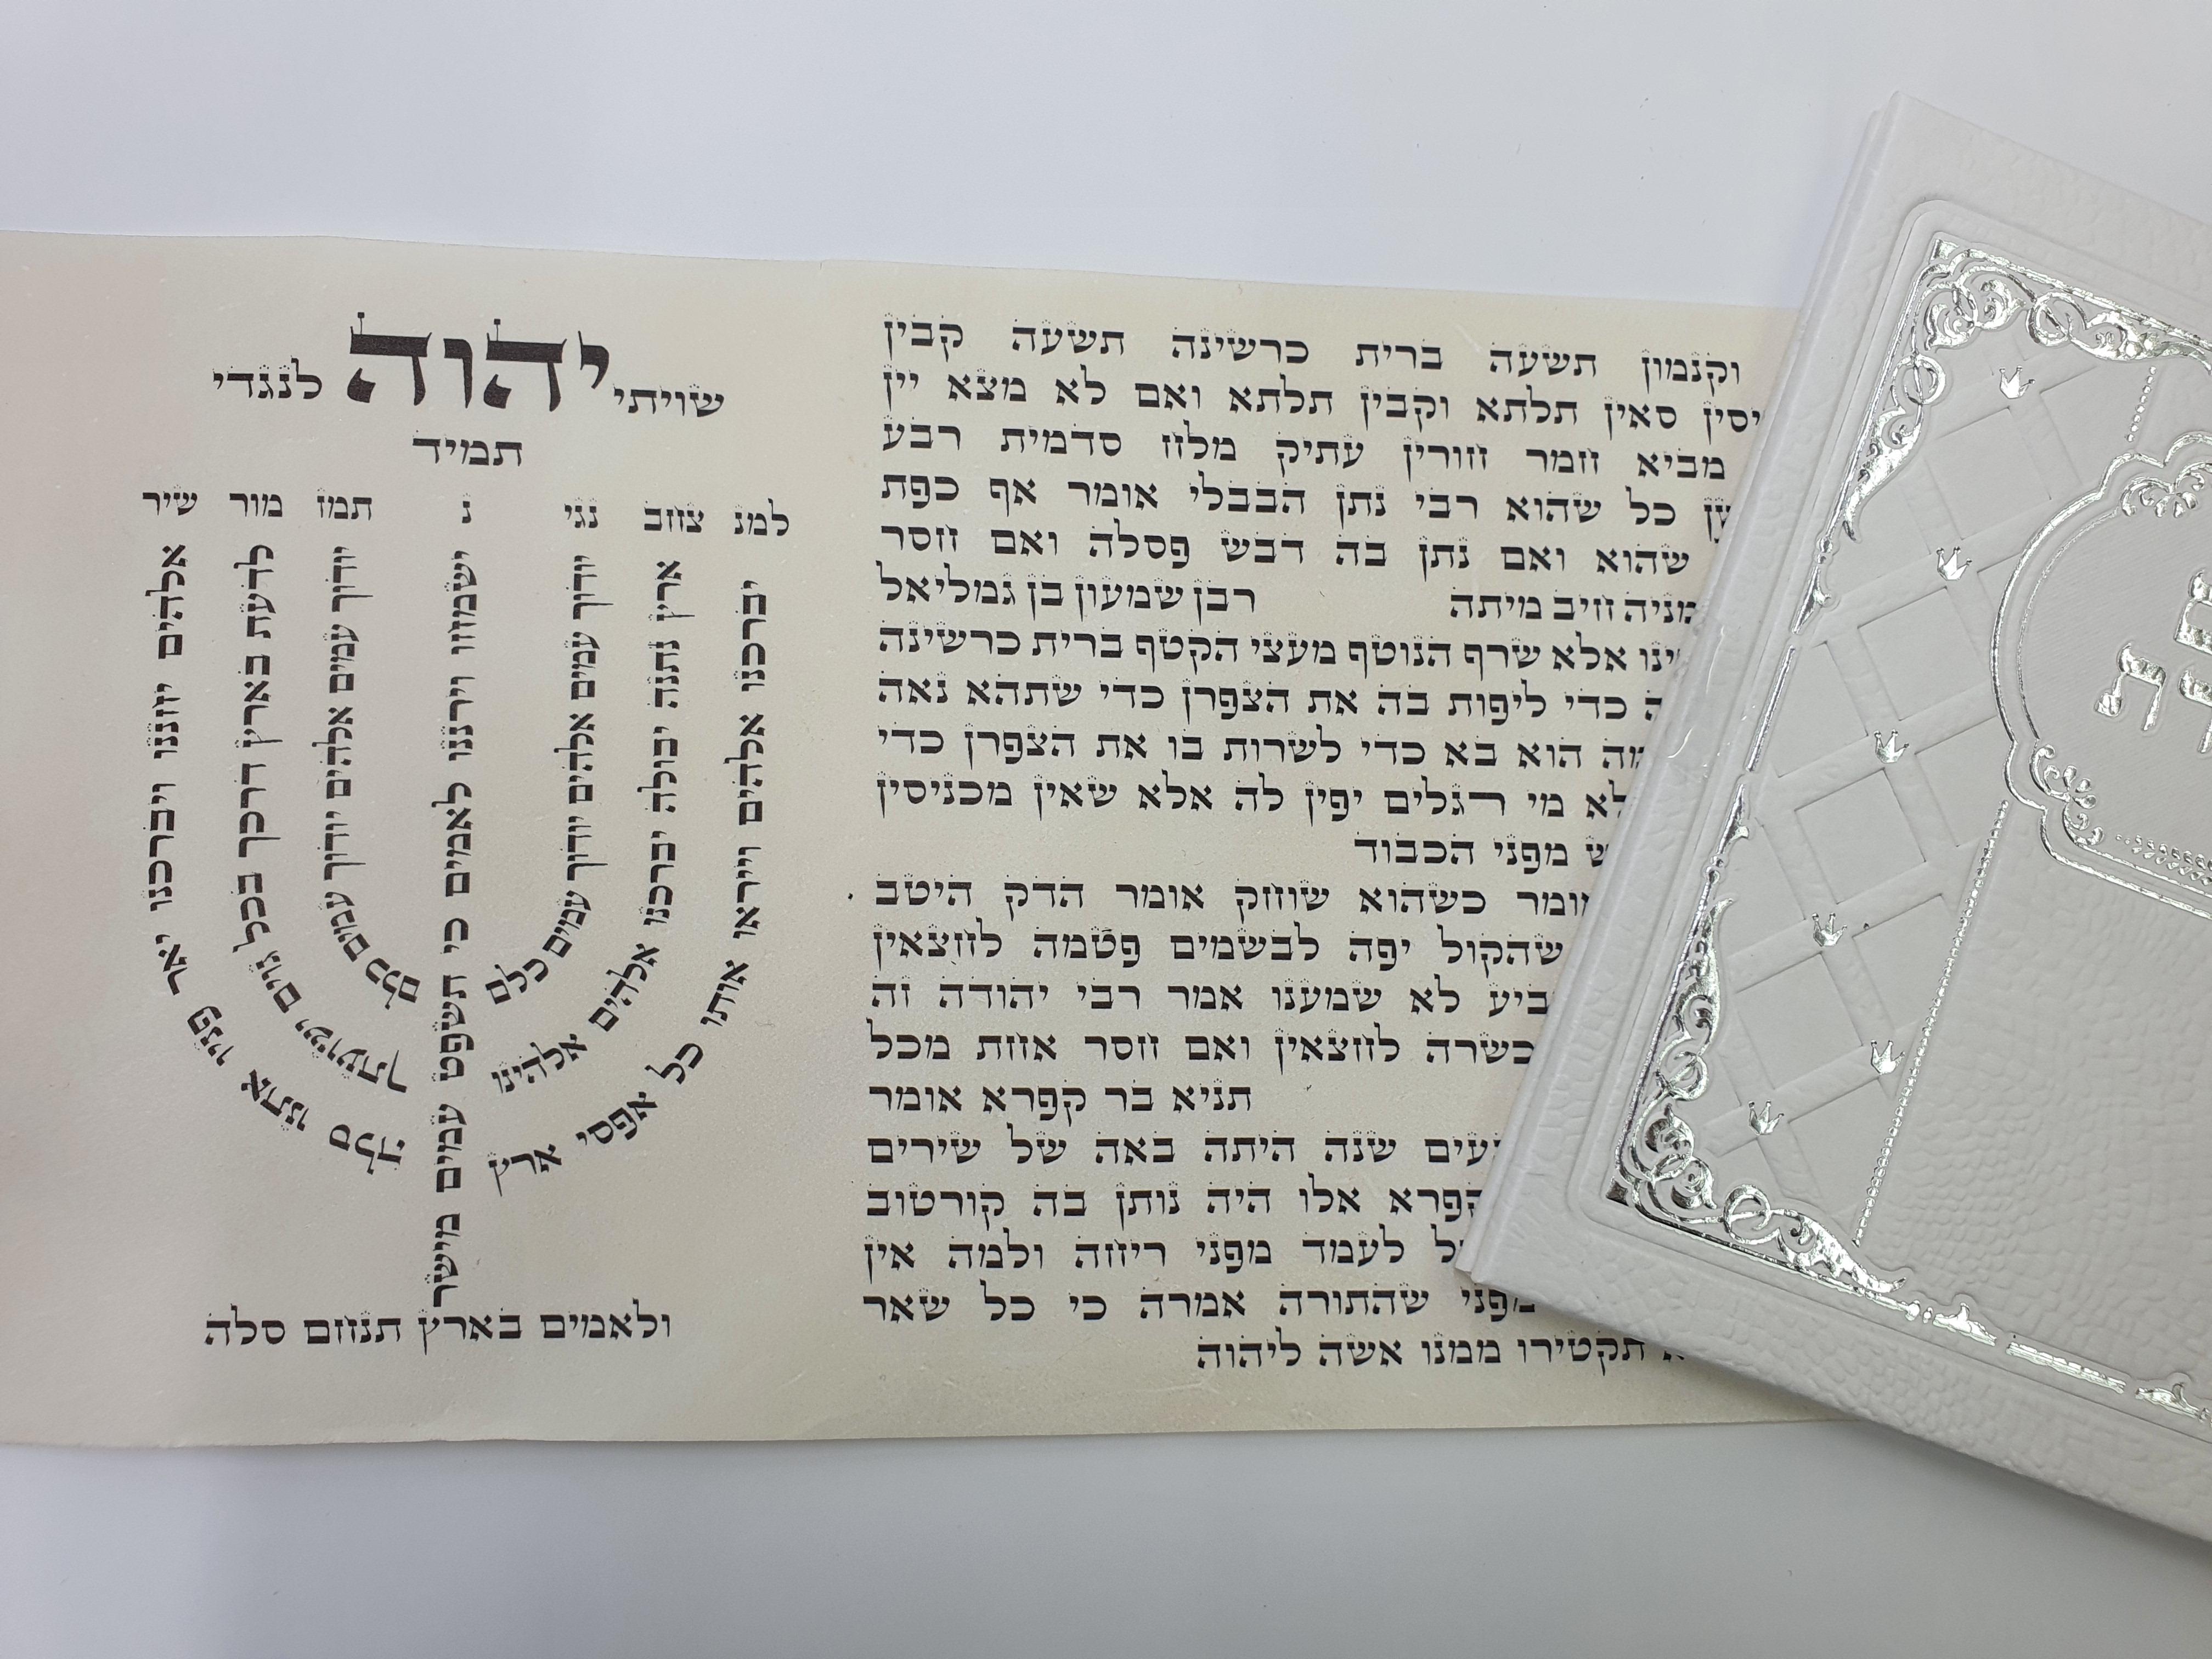 וקנמון תשעה ברית כרשינה תשעה קבין
סאין תלתא וקבין תלתא ואם לא מצא יין
מביא חמר חורין עתיק מלח סדמית רבע
כל שהוא רבי נתן הבבלי אומר אף כפת
שהוא ואם נתן בה דבש פסלה ואם חסר
חיב מיתה רבן שמעון בן גמליאל
אלא שרף הנוטף מעצי הקטף ברית כרשינה
כדי ליפות בה את הצפרן כדי שתהא נאה
הוא בא כדי לשרות בו את הצפרן כדי
מי רגלים יפין לה אלא שאין מכניסין
מפני הכבוד
כשהוא שוחק אומר הדק היטב
שהקול יפה לבשמים פטמה לחצאין
לא שמענו אמר רבי יהודה זה
כשרה לחצאין ואם חסר אחת מכל
תניא בר קפרא אומר
שנה היתה באה של שירים
קפרא אלו היה נותן בה קורטוב
לעמד מפני ריחה ולמה אין
מפני שהתורה אמרה כי כל שאר
תקטירו ממנו אשה ליהוה
שויתי יהוה לנגדי
תמיד
למנ צחב נגי נ תמז מור שיר
יברכנו אלהים וייראו אותו כל אפסי ארץ
ארץ נתנה יבולה יברכנו אלהים אלהינו
יודוך עמים אלהים יודוך עמים כלם
ישמחו וירננו לאמים כי תשפט עמים מישר
יודוך עמים אלהים יודוך עמים כלם
לדעת בארץ דרכך בכל גוים ישועתך
אלהים יחננו ויברכנו יאר פניו אתנו סלה
ולאמים בארץ תנחם סלה